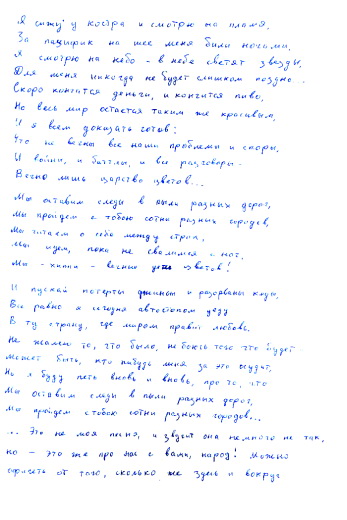 Я сижу у костра и смотрю на пламя.
За пацифик на шее меня били ногами,
Я смотрю на небо - в небе светят звезды,
Для меня никогда не будет слишком поздно.
Скоро кончатся деньги, и кончится пиво,
Но весь мир остается таким же красивым,
И я всем доказать готов:
Что не вечны все наши проблемы и споры,
И войны, и баттлы, и все разговоры -
Вечно лишь царство цветов...
Мы оставим следы в пыли разных дорог,
Мы пройдем с тобою сотни разных городов,
Мы читаем о себе между строк,
Мы идем, пока не свалимся с ног.
Мы - хиппи - вечные дети цветов!
И пускай потерты джинсы и разорваны кеды,
Все равно я сегодня автостопом уеду
В ту страну, где миром правит любовь.
Не жалею то, что было, не боюсь того что будет
Может быть, кто нибудь меня за это осудит,
Но я буду петь вновь и вновь, про то, что
Мы оставим следы в пыли разных дорог,
Мы пройдем с тобою сотни разных городов...
... Это не моя песня, и звучит она немного не так,
но - это же про нас с вами, народ! Можно
сгореть от того, сколько же здесь и вокруг